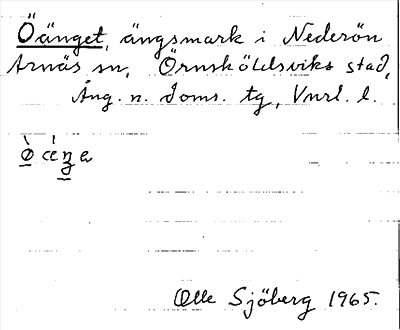 Öänget, ängsmark i Nederön
Arnäs sn, Örnsköldsviks stad,
Ång. n. doms. tg, Vnrl. l.
Olle Sjöberg 1965.